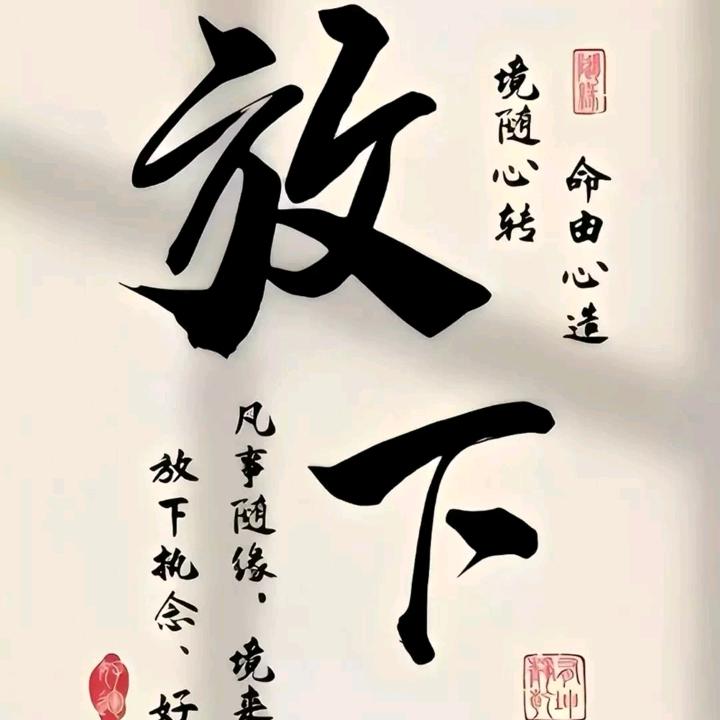 放下
命由心造
境随心转
凡事随缘，境来
放下执念、好